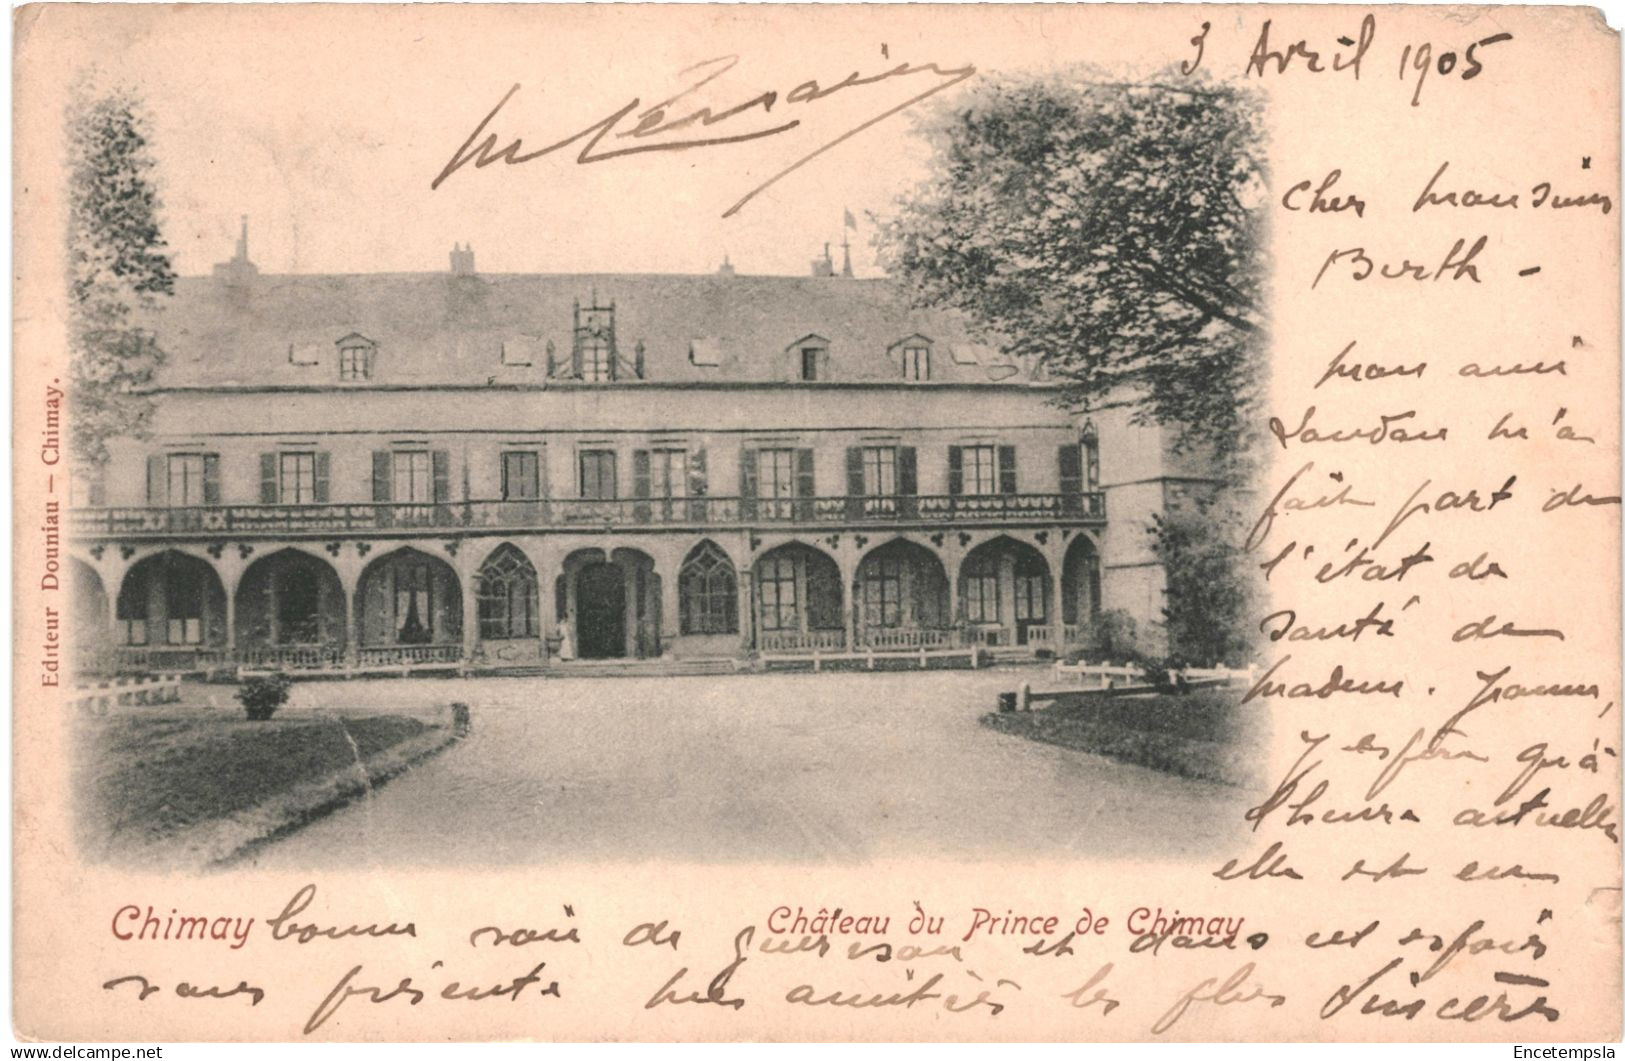 3 Avril 1905
Cher monsieur
Berth -
mon ami
m'a
fait part de
l'état de
santé de
madem.
j'espère qu'à
l'heure actuelle
elle est en
bonne voie de guérison et dans cet espoir
vous présente mes amitiés les plus sincères
Chimay
Château du Prince de Chimay
Editeur Douniau — Chimay.
delcampe.net
Encetempsla